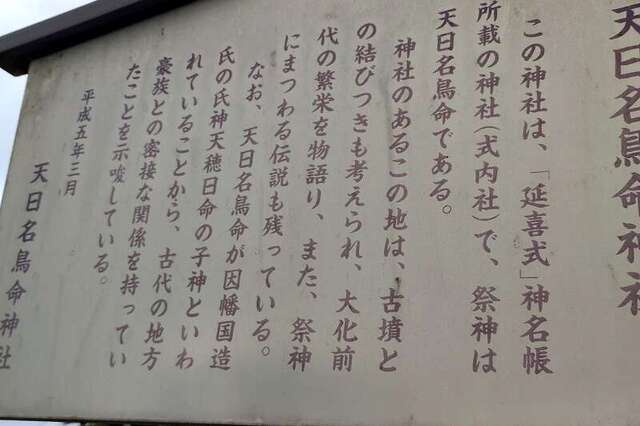 天日名鳥命神社
この神社は、「延喜式」神名帳
所載の神社(式内社)で、祭神は
天日名鳥命である。
神社のあるこの地は、古墳と
の結びつきも考えられ、大化前
代の繁栄を物語り、また、祭神
にまつわる伝説も残っている。
なお、天日名鳥命が因幡国造
氏の氏神天穂日命の子神といわ
れていることから、古代の地方
豪族との密接な関係を持ってい
たことを示唆している。
平成五年三月
天日名鳥命神社